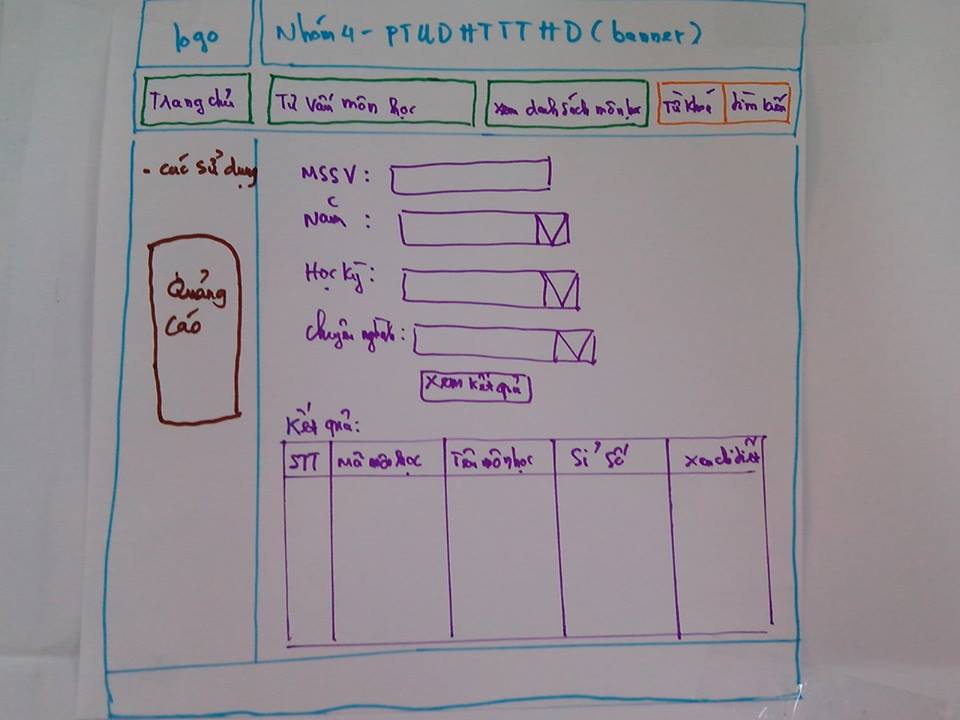 logo
Nhóm 4 - PTUDHTTTHD (banner)
Trang chủ
Tư vấn môn học
Xem danh sách môn học
Từ khoá
tìm kiếm
- các sử dụng
Quảng
Cáo
MSSV:
Năm :
Học kỳ:
Chuyên ngành:
Xem kết quả
Kết quả:
STT
Mã môn học
Tên môn học
Sỉ số
Xem chi tiết